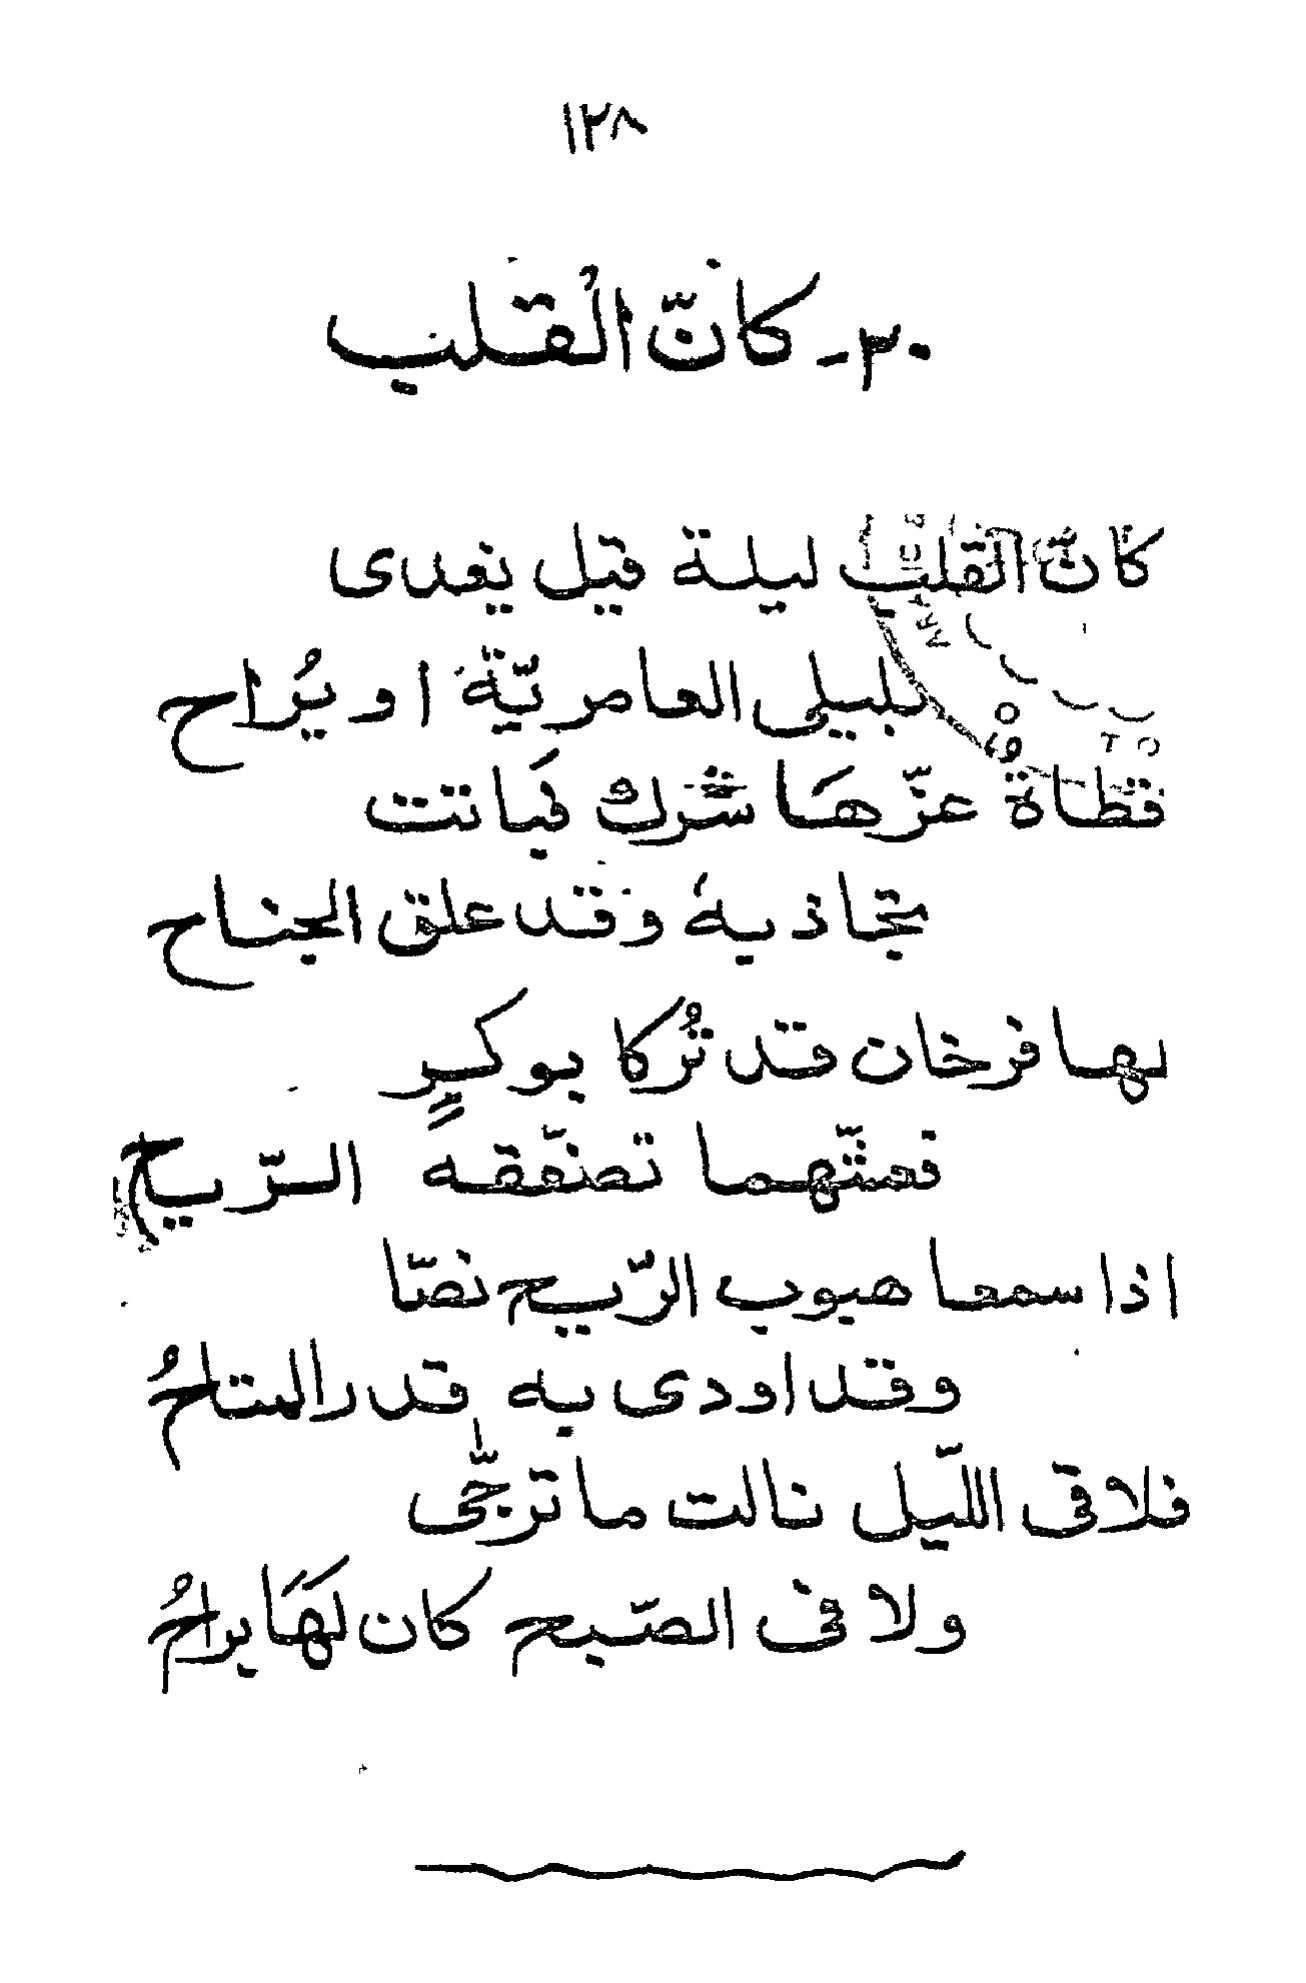 ١٢٨
٣٠- كانّ الْقلب
كانّ القلب ليلة قيل يغدى
بليلى العامريّة او يُراح
قطاةٌ عزّهَا شَرَك فَباتت
تجاذبهُ وقد علق الجناح
لها فرخان قد تُركا بوكرٍ
فعشّهما تصفّقه الرّيح
اذا سمعا هبوب الرّيح نصّا
وقد اودى به قدر المتاحُ
فلا فى اللّيل نالت ما ترجّى
ولا فى الصّبح كان لهَا براحُ